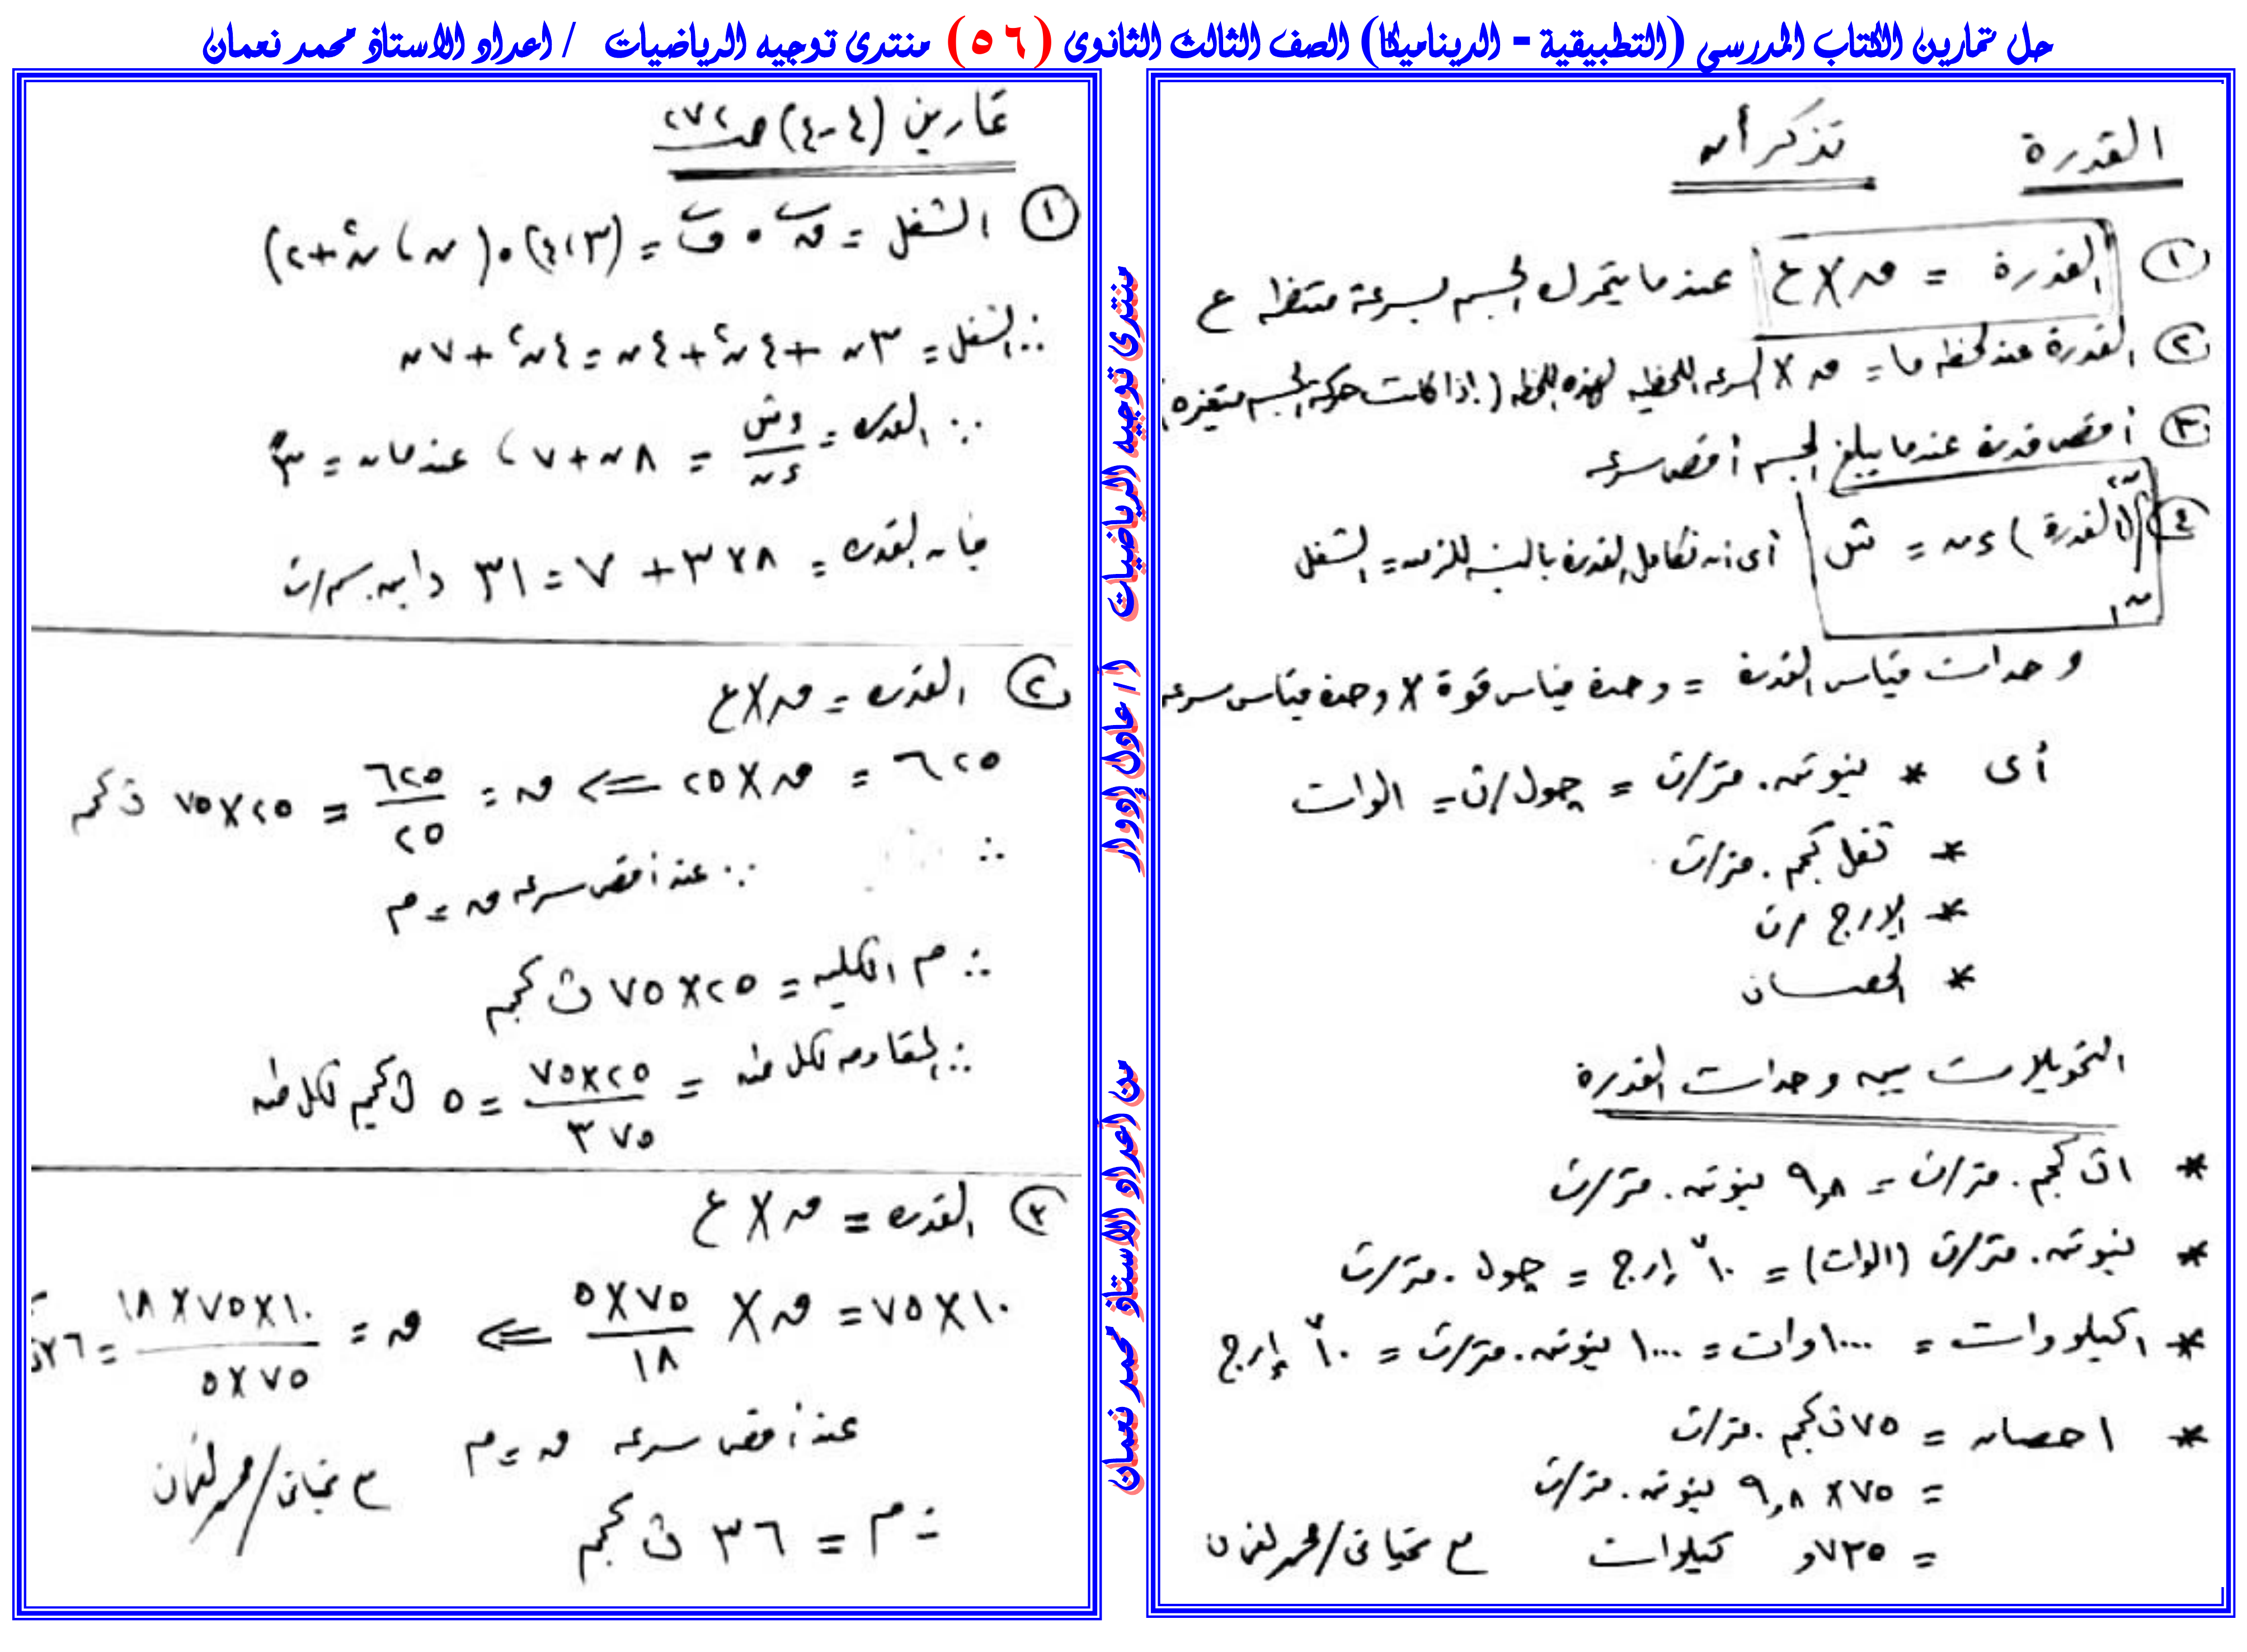 حل تمارين الكتاب المدرسي (التطبيقية - الديناميكا) الصف الثالث الثانوى (٥٦) منتدى توجيه الرياضيات / اعداد الاستاذ محمد نعمان
القدرة تذكر أن
① القدرة = ق × ع عندما يتحرك الجسم بسرعة منتظمه ع
② القدرة عند لحظه ما = ق × السرعه اللحظيه لهذه اللحظه (إذا كانت حركة الجسم متغيره)
③ أقصى قدرة عندما يبلغ الجسم أقصى سرعه
④ ∫ن١ن٢ (القدرة) ءن = ش أى أن تكامل القدرة بالنسبه للزمن = الشغل
وحدات قياس القدرة = وحدة قياس قوة × وحدة قياس سرعه
أى * نيوتن. متر/ث = جول/ث = الوات
* ثقل كجم . متر/ث
* الإرج/ث
* الحصان
التحويلات بين وحدات القدرة
* ١ث كجم. متر/ث = ٩,٨ نيوتن. متر/ث
* نيوتن. متر/ث (الوات) = ١٠^٧ إرج = جول . متر/ث
* ١كيلووات = ١٠٠٠وات = ١٠٠٠ نيوتن. متر/ث = ١٠^١٠ إرج
* ١ حصان = ٧٥ث كجم .متر/ث
= ٧٥ × ٩,٨ نيوتن. متر/ث
= ٧٣٥و كيلوات مع تحياتى/محمد نعمان
تمارين (٤-٤) صـ ٢٧٢
① الشغل = ق • ف = (٣،٤) • (ن ، ن^٢+٢)
∴ الشغل = ٣ن + ٤ن^٢ + ٤ن = ٤ن^٢ + ٧ن
∵ القدره = ءش/ءن = ٨ن + ٧ ، عندما ن = ٣
فإن القدره = ٨×٣ + ٧ = ٣١ داين.سم/ث
② القدره = ق × ع
٦٢٥ = ق × ٢٥ ⇐ ق = ٦٢٥/٢٥ = ٢٥×٧٥ ث كجم
∴ ∵ عند أقصى سرعه ق = م
∴ م الكليه = ٢٥×٧٥ ث كجم
∴ المقاومه لكل طن = ٢٥×٧٥/٣٧٥ = ٥ ث كجم لكل طن
③ القدره = ق × ع
١٠×٧٥ = ق × ٧٥×٥/١٨ ⇐ ق = ١٠×٧٥×١٨/٧٥×٥ = ٣٦ث
عند أقصى سرعه ق = م
∴ م = ٣٦ ث كجم
مع تحياتى/محمد نعمان
منتدى توجيه الرياضيات أ / عادل إدوار
من اعداد الاستاذ محمد نعمان